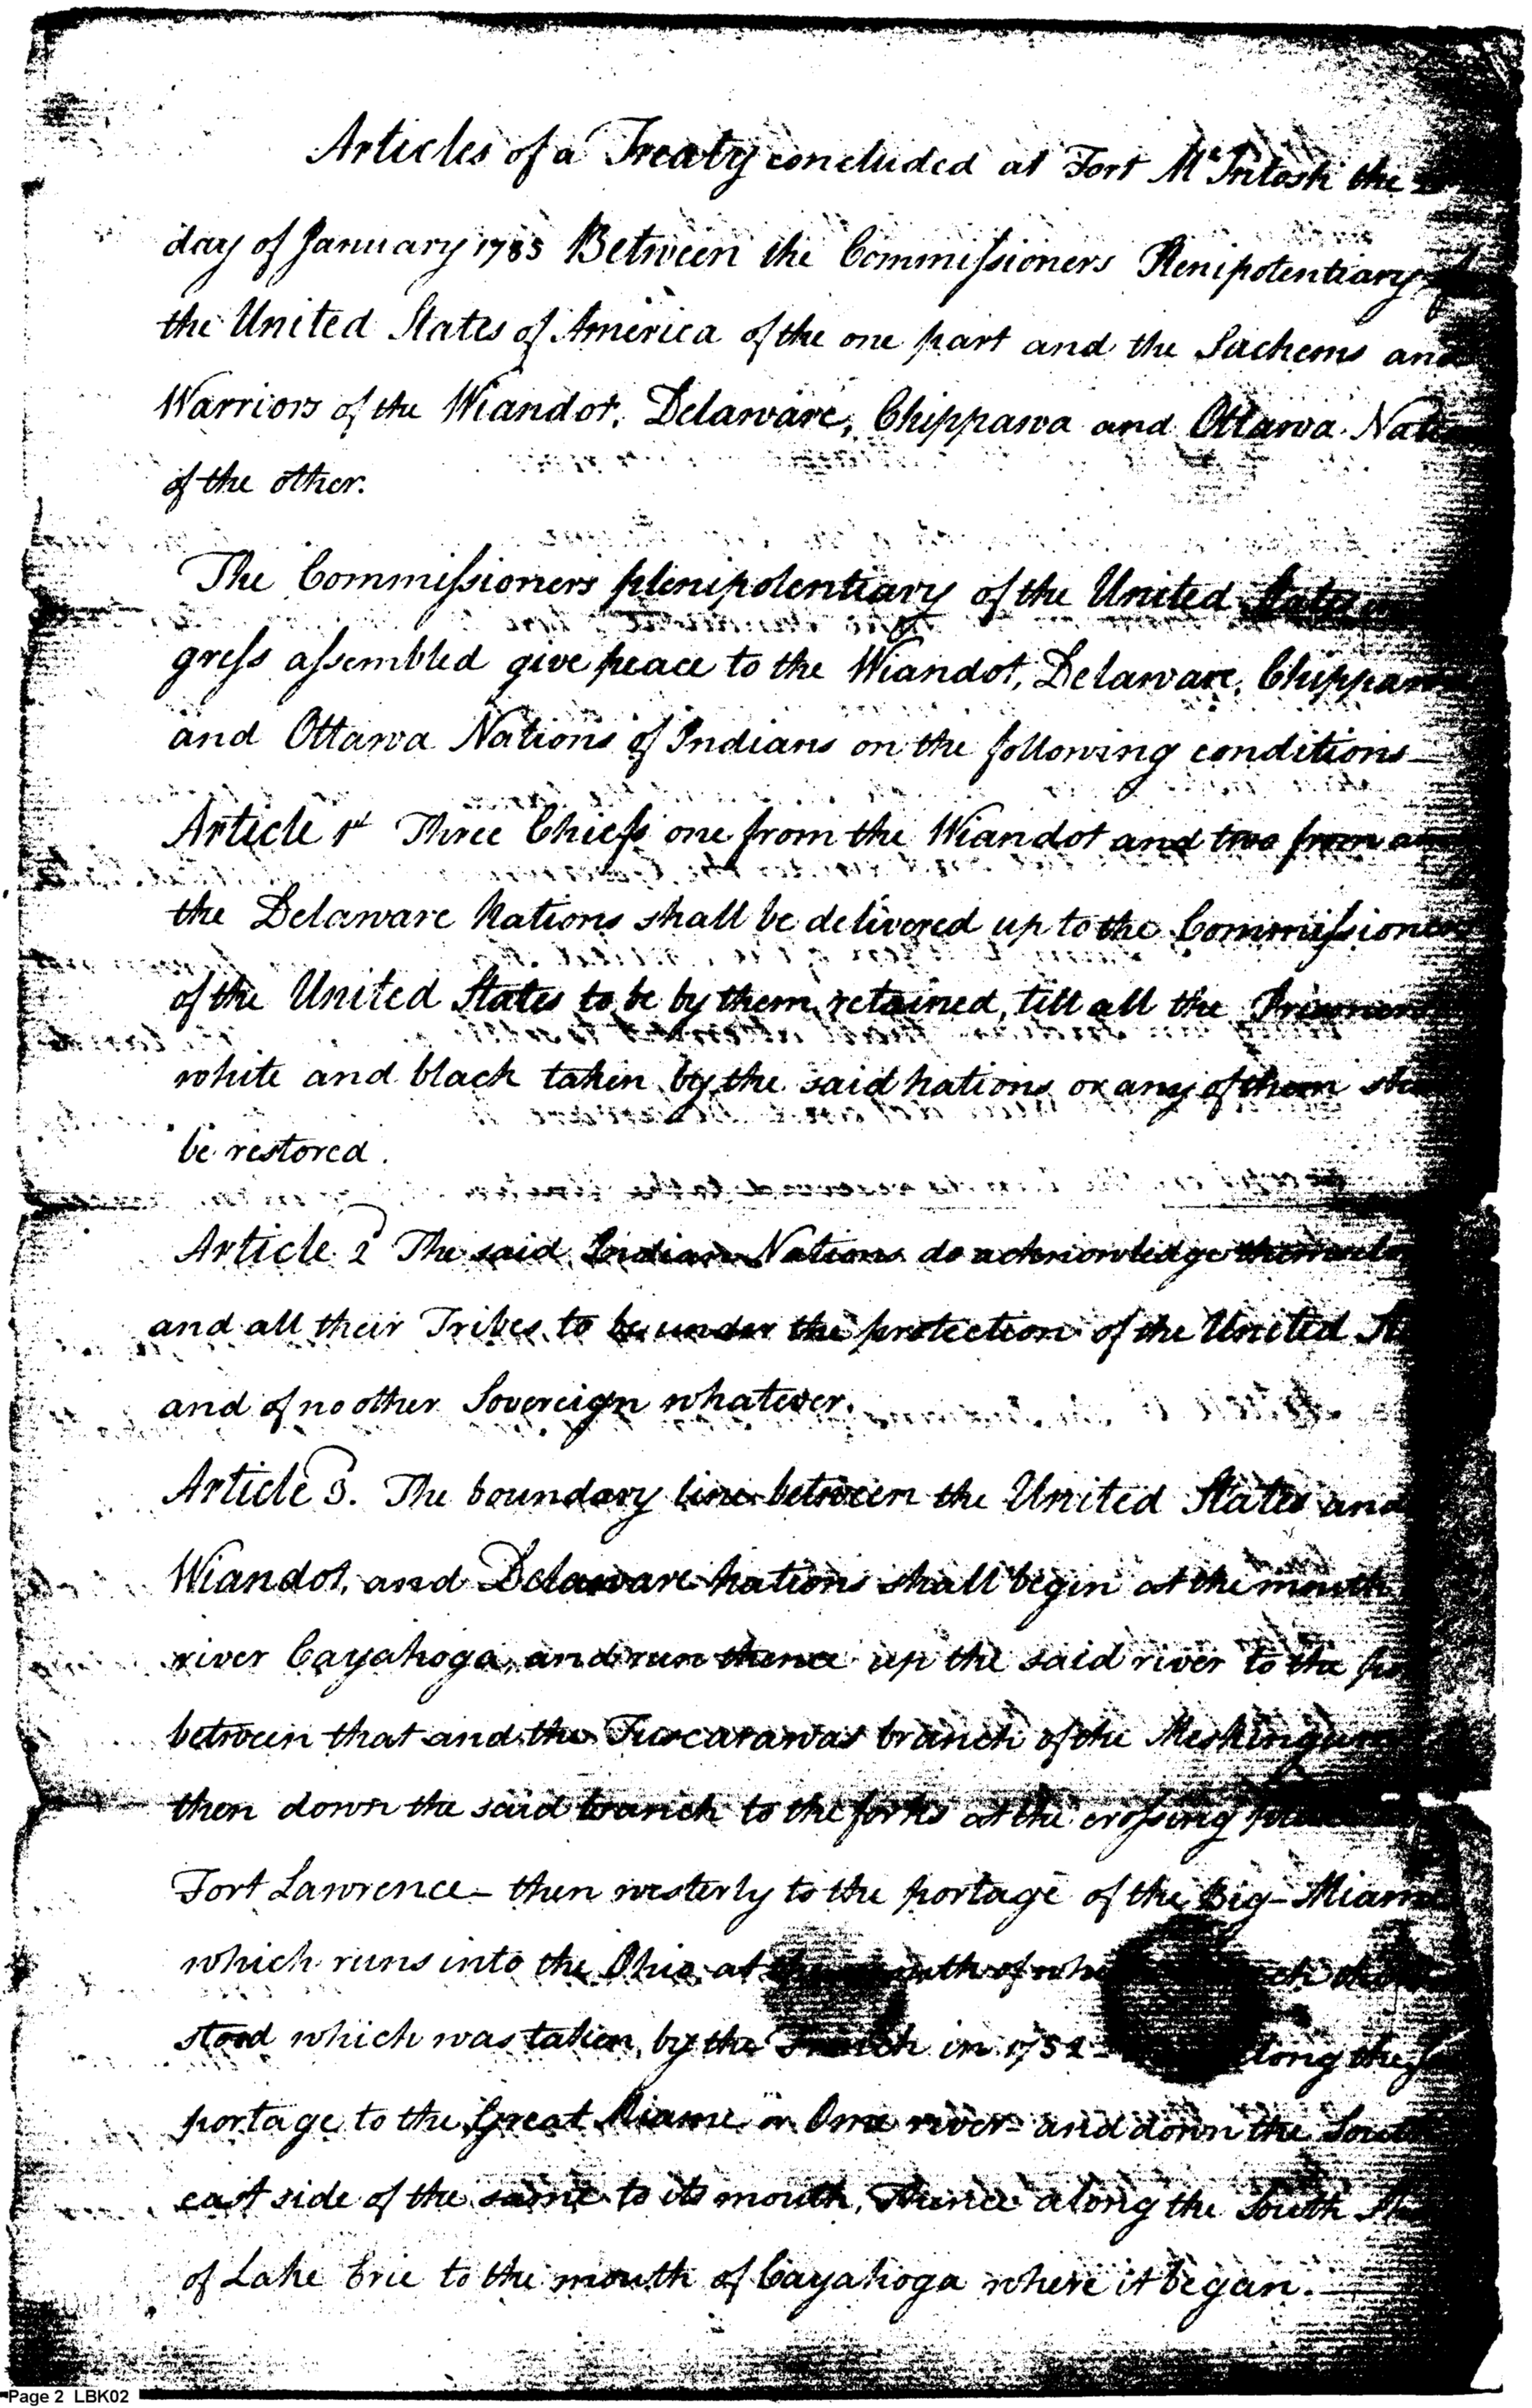 Articles of a Treaty concluded at Fort McIntosh the
day of January 1785 Between the Commissioners Plenipotentiary
the United States of America of the one part and the Sachems and
Warriors of the Wiandot, Delaware, Chippawa and Ottawa
of the other.
The Commissioners plenipotentiary of the United States
gress assembled give peace to the Wiandot, Delaware, Chippawa
and Ottawa Nations of Indians on the following conditions
Article 1st Three Chiefs one from the Wiandot and two from
the Delaware Nations shall be delivered up to the Commissioners
of the United States to be by them retained, till all the Prisoners
white and black taken by the said nations or any of them
be restored.
Article 2d The said Indian Nations do acknowledge
and all their Tribes to be under the protection of the United
and of no other Sovereign whatever.
Article 3. The boundary line between the United States and
Wiandot, and Delaware Nations shall begin at the mouth
river Cayahoga, and run thence up the said river to the
between that and the Tuscarawas branch of the Meskingum
then down the said branch to the forks at the crossing
Fort Lawrence - then westerly to the portage of the Big-Miami
which runs into the Ohio, at the mouth of
stood which was taken by the French in 1752 - along the
portage to the Great Miame or Ome river - and down the South
east side of the same to its mouth, thence along the South
of Lake Erie to the mouth of Cayahoga where it began.
Page 2 LBK02